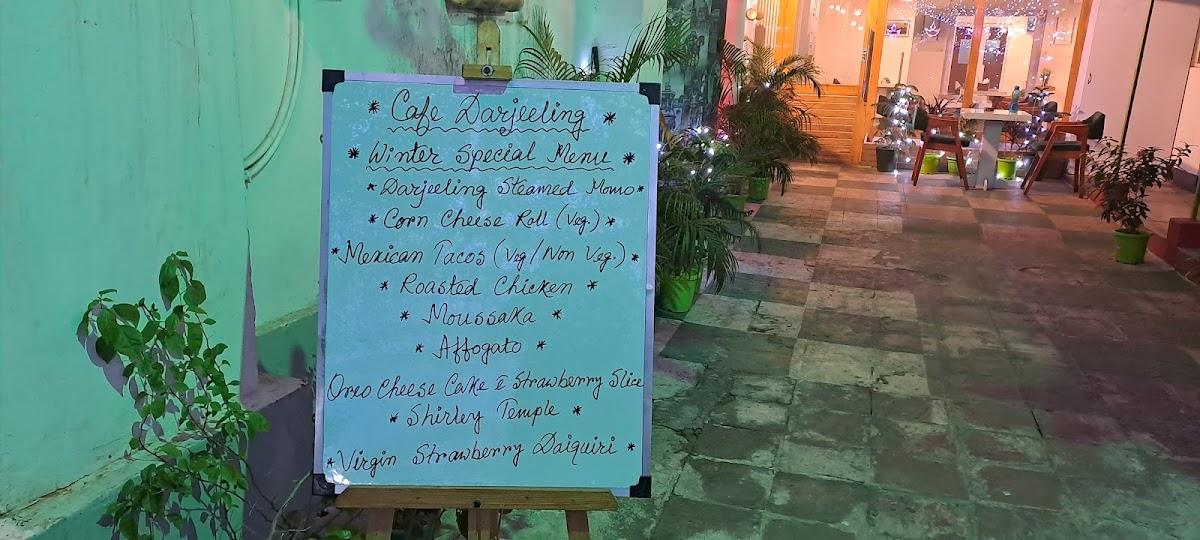 * Cafe Darjeeling *
* Winter Special Menu *
* Darjeeling Steamed Momo *
* Corn Cheese Roll (Veg) *
* Mexican Tacos (Veg/Non Veg.) *
* Roasted Chicken *
* Moussaka *
* Affogato *
Oreo Cheese Cake & Strawberry Slice
* Shirley Temple *
* Virgin Strawberry Daiquiri *